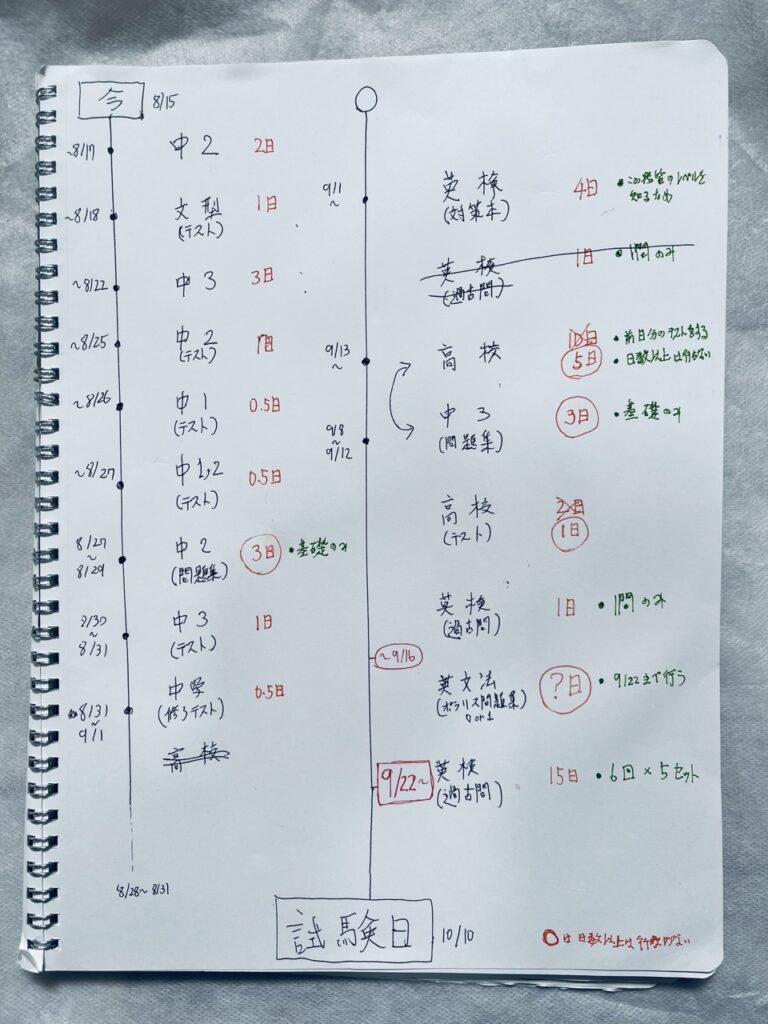 今 8/15
~8/17 中2 2日
~8/18 文型 1日
(テスト)
~8/22 中3 3日
~8/25 中2 1日
(テスト)
~8/26 中1 0.5日
(テスト)
~8/27 中1,2 0.5日
(テスト)
8/27
~
8/29
中2 3日 •基礎のみ
(問題集)
8/30
~
8/31
中3 1日
(テスト)
8/31
~
9/1
中学 0.5日
(修了テスト)
高校
8/28~8/31
9/1
~
英検 4日
(対策本)
•この級のレベルを
知るため
英検 1日 •1問のみ
(過去問)
9/13
~
高校 10日
5日
•前日分のテストをする
•日数以上は行わない
9/8
~
9/12
中3 3日 •基礎のみ
(問題集)
高校 2日
(テスト) 1日
英検 1日 •1問のみ
(過去問)
~9/16
英文法 ?日 •9/22まで行う
(ポラリス問題集)
0 or 1
9/22~
英検 15日 •6回×5セット
(過去問)
試験日 10/10
○は日数以上は行わない